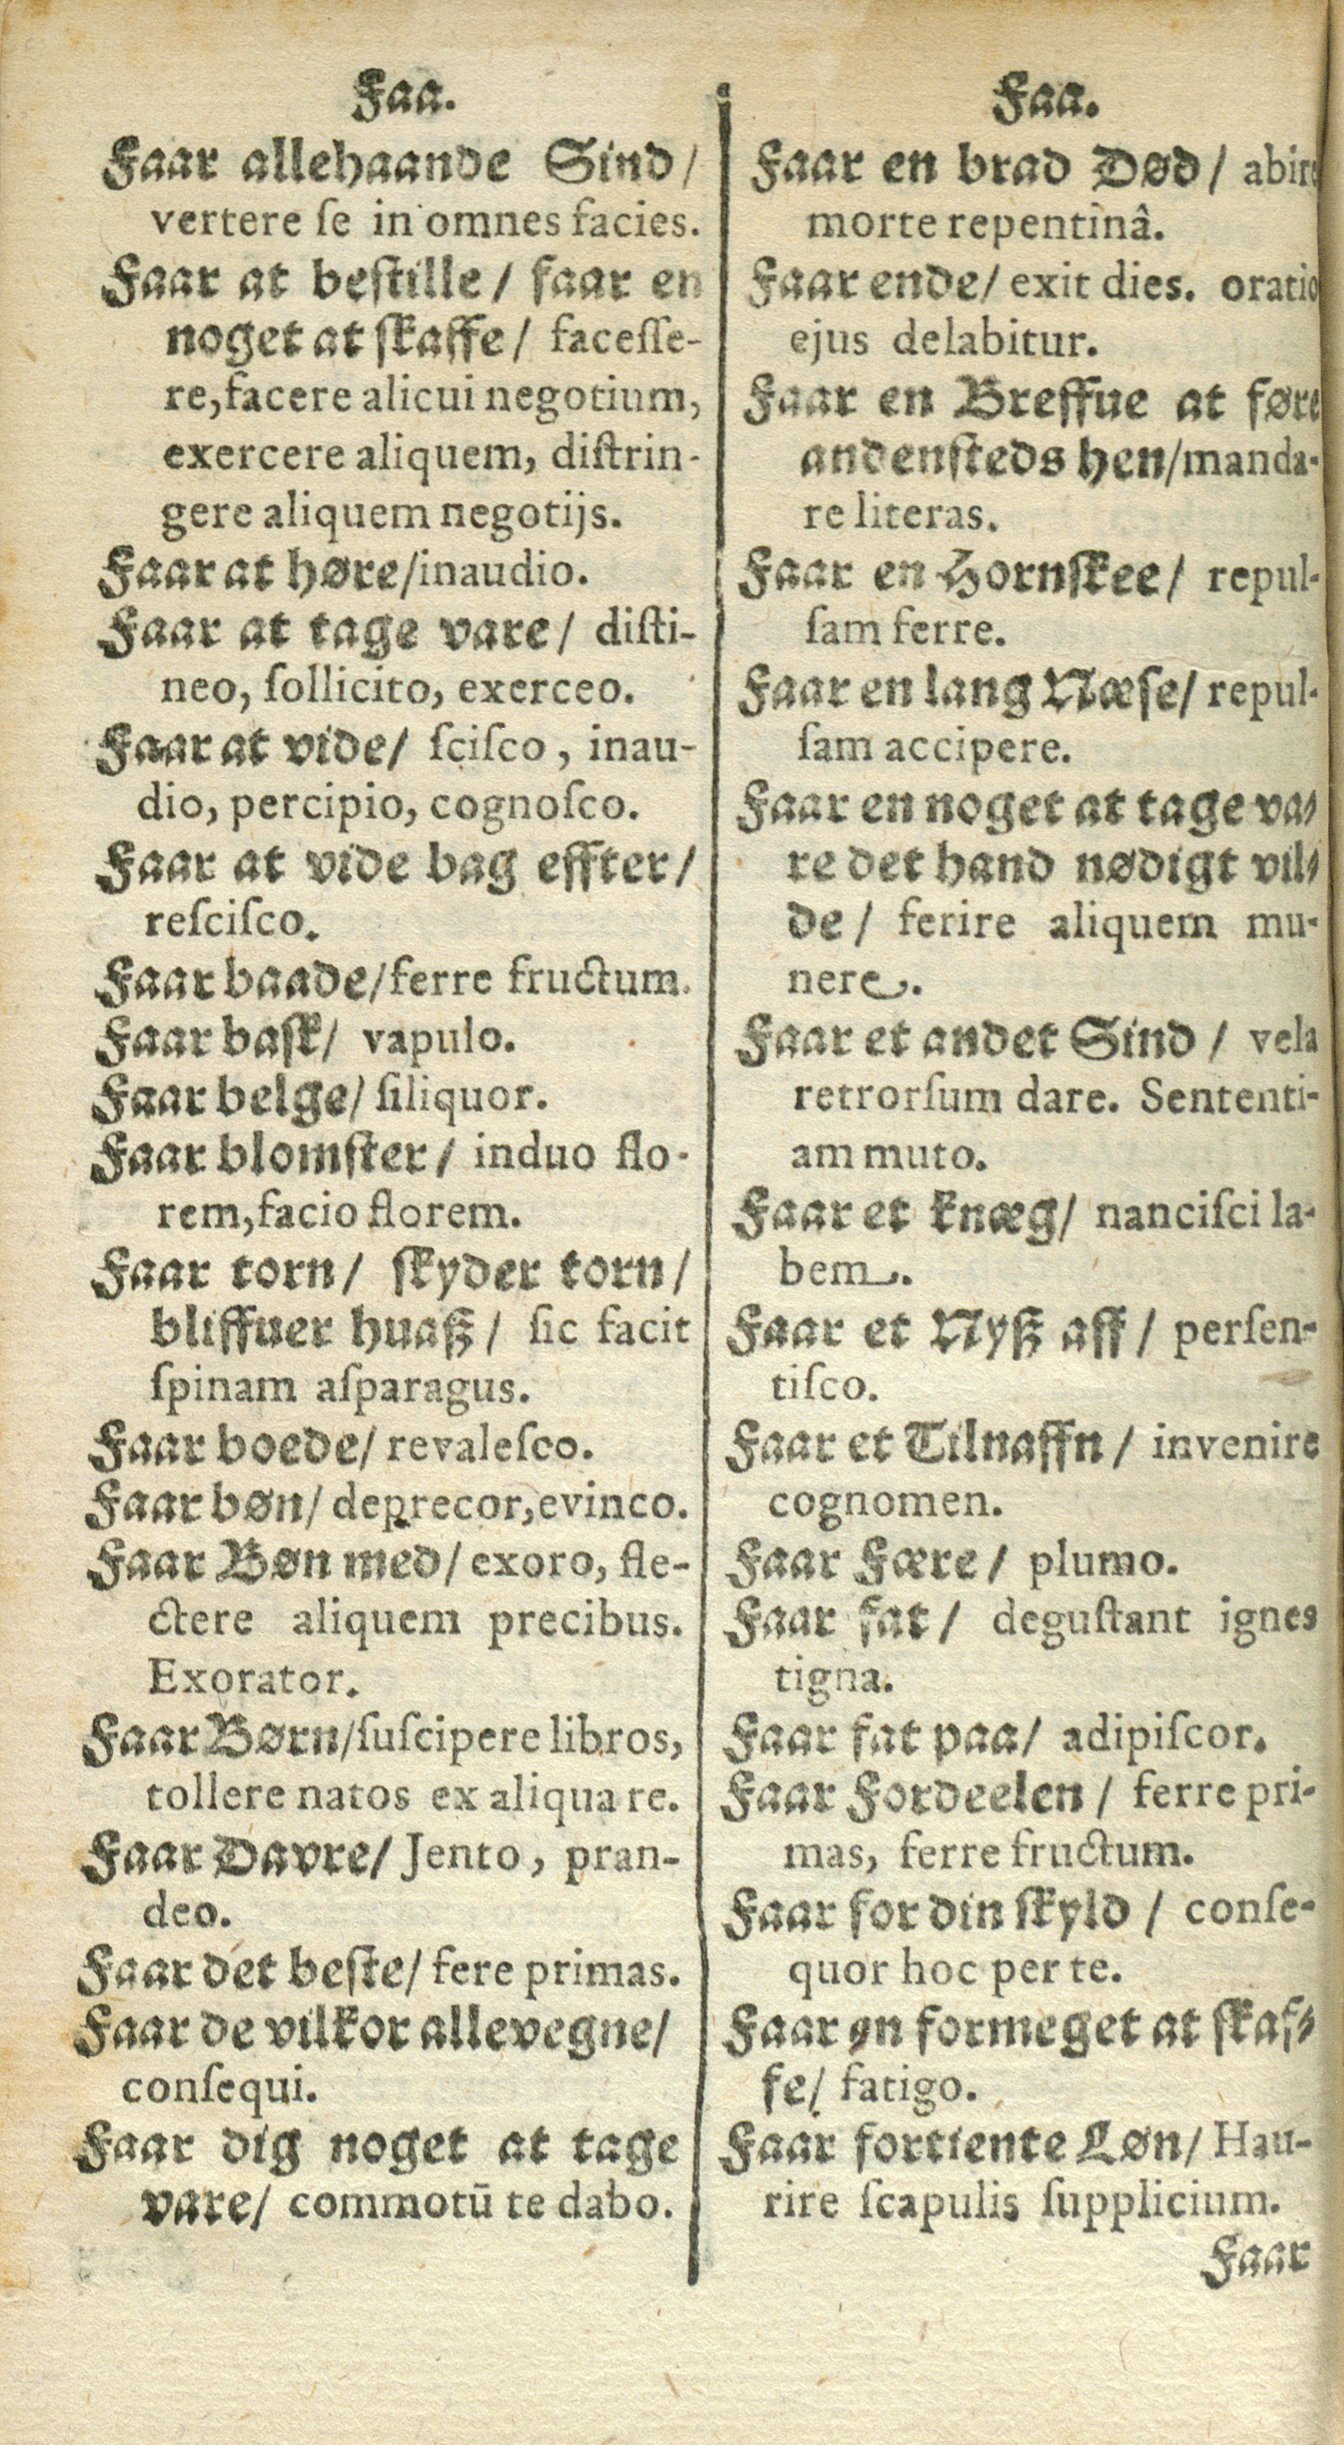 Faa.
Faar allehaande Sind/
vertere ſe in omnes facies.
Faar at beſtille/ faar en
noget at ſkaffe/ faceſſe-
re, facere alicui negotium,
exercere aliquem, diſtrin-
gere aliquem negotijs.
Faar at høre/inaudio.
Faar at tage vare/ diſti-
neo, ſollicito, exerceo.
Faar at vide/ ſciſco, inau-
dio, percipio, cognoſco.
Faar at vide bag effter/
reſciſco.
Faar baade/ferre fructum.
Faar baſk/ vapulo.
Faar belge/ ſiliquor.
Faar blomſter/ induo flo-
rem, facio florem.
Faar torn/ ſkyder torn/
bliffuer huaß/ ſic facit
ſpinam aſparagus.
Faar boede/ revaleſco.
Faar bøn/ deprecor, evinco.
Faar Bøn med/ exoro, fle-
ctere aliquem precibus.
Exorator.
Faar Børn/ſuſcipere libros,
tollere natos ex aliqua re.
Faar Davre/ Jento, pran-
deo.
Faar det beſte/ fere primas.
Faar de vilkor allevegne/
conſequi.
Faar dig noget at tage
vare/ commotū te dabo.
Faa.
Faar en brad Død/ abire
morte repentinâ.
Faar ende/ exit dies. oratio
ejus delabitur.
Faar en Breffue at føre
andenſteds hen/manda-
re literas.
Faar en Hornſkee/ repul-
ſam ferre.
Faar en lang Næſe/ repul-
ſam accipere.
Faar en noget at tage va-
re det hand nødigt vil-
de/ ferire aliquem mu-
nere.
Faar et andet Sind/ vela
retrorſum dare. Sententi-
am muto.
Faar et knæg/ nanciſci la-
bem.
Faar et Nyß aff/ perſen-
tiſco.
Faar et Tilnaffn/ invenire
cognomen.
Faar Fære/ plumo.
Faar fat/ deguſtant ignes
tigna.
Faar fat paa/ adipiſcor.
Faar Fordeelen/ ferre pri-
mas, ferre fructum.
Faar for din ſkyld/ conſe-
quor hoc per te.
Faar øn formeget at ſkaf-
fe/ fatigo.
Faar fortiente Løn/ Hau-
rire ſcapulis ſupplicium.
Faar